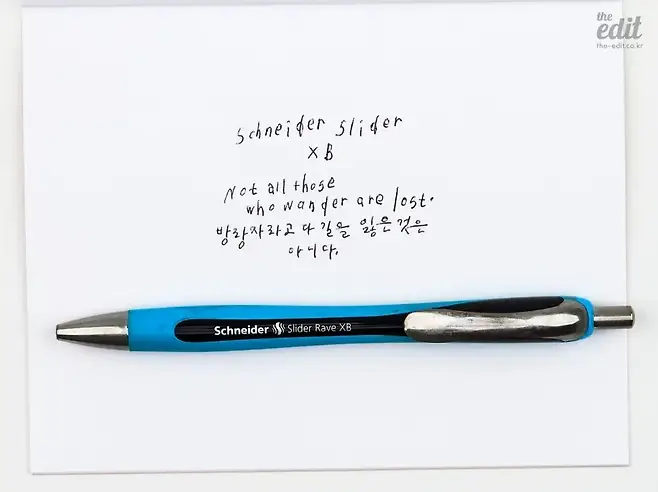 the
edit
the-edit.co.kr
Schneider Slider
XB
Not all those
who wander are lost.
방랑자라고 다 길을 잃은것은
아니다.
Schneider Slider Rave XB